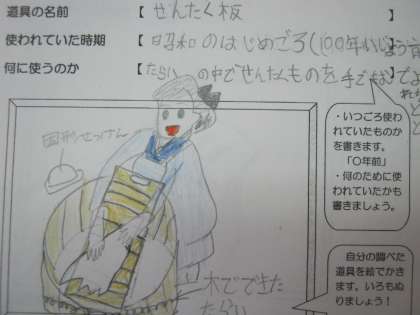 道具の名前 【 せんたく板 】
使われていた時期 【 昭和のはじめごろ(100年いじょう前
何に使うのか 【 たらいの中でせんたくものを手で
・いつごろ使わ
れていたものか
を書きます。
「〇年前」
・何のために使
われていたかも
書きましょう。
固形せっけん
木でできた
たらい
自分の調べた
道具を絵でかき
ます。いろもぬ
りましょう!